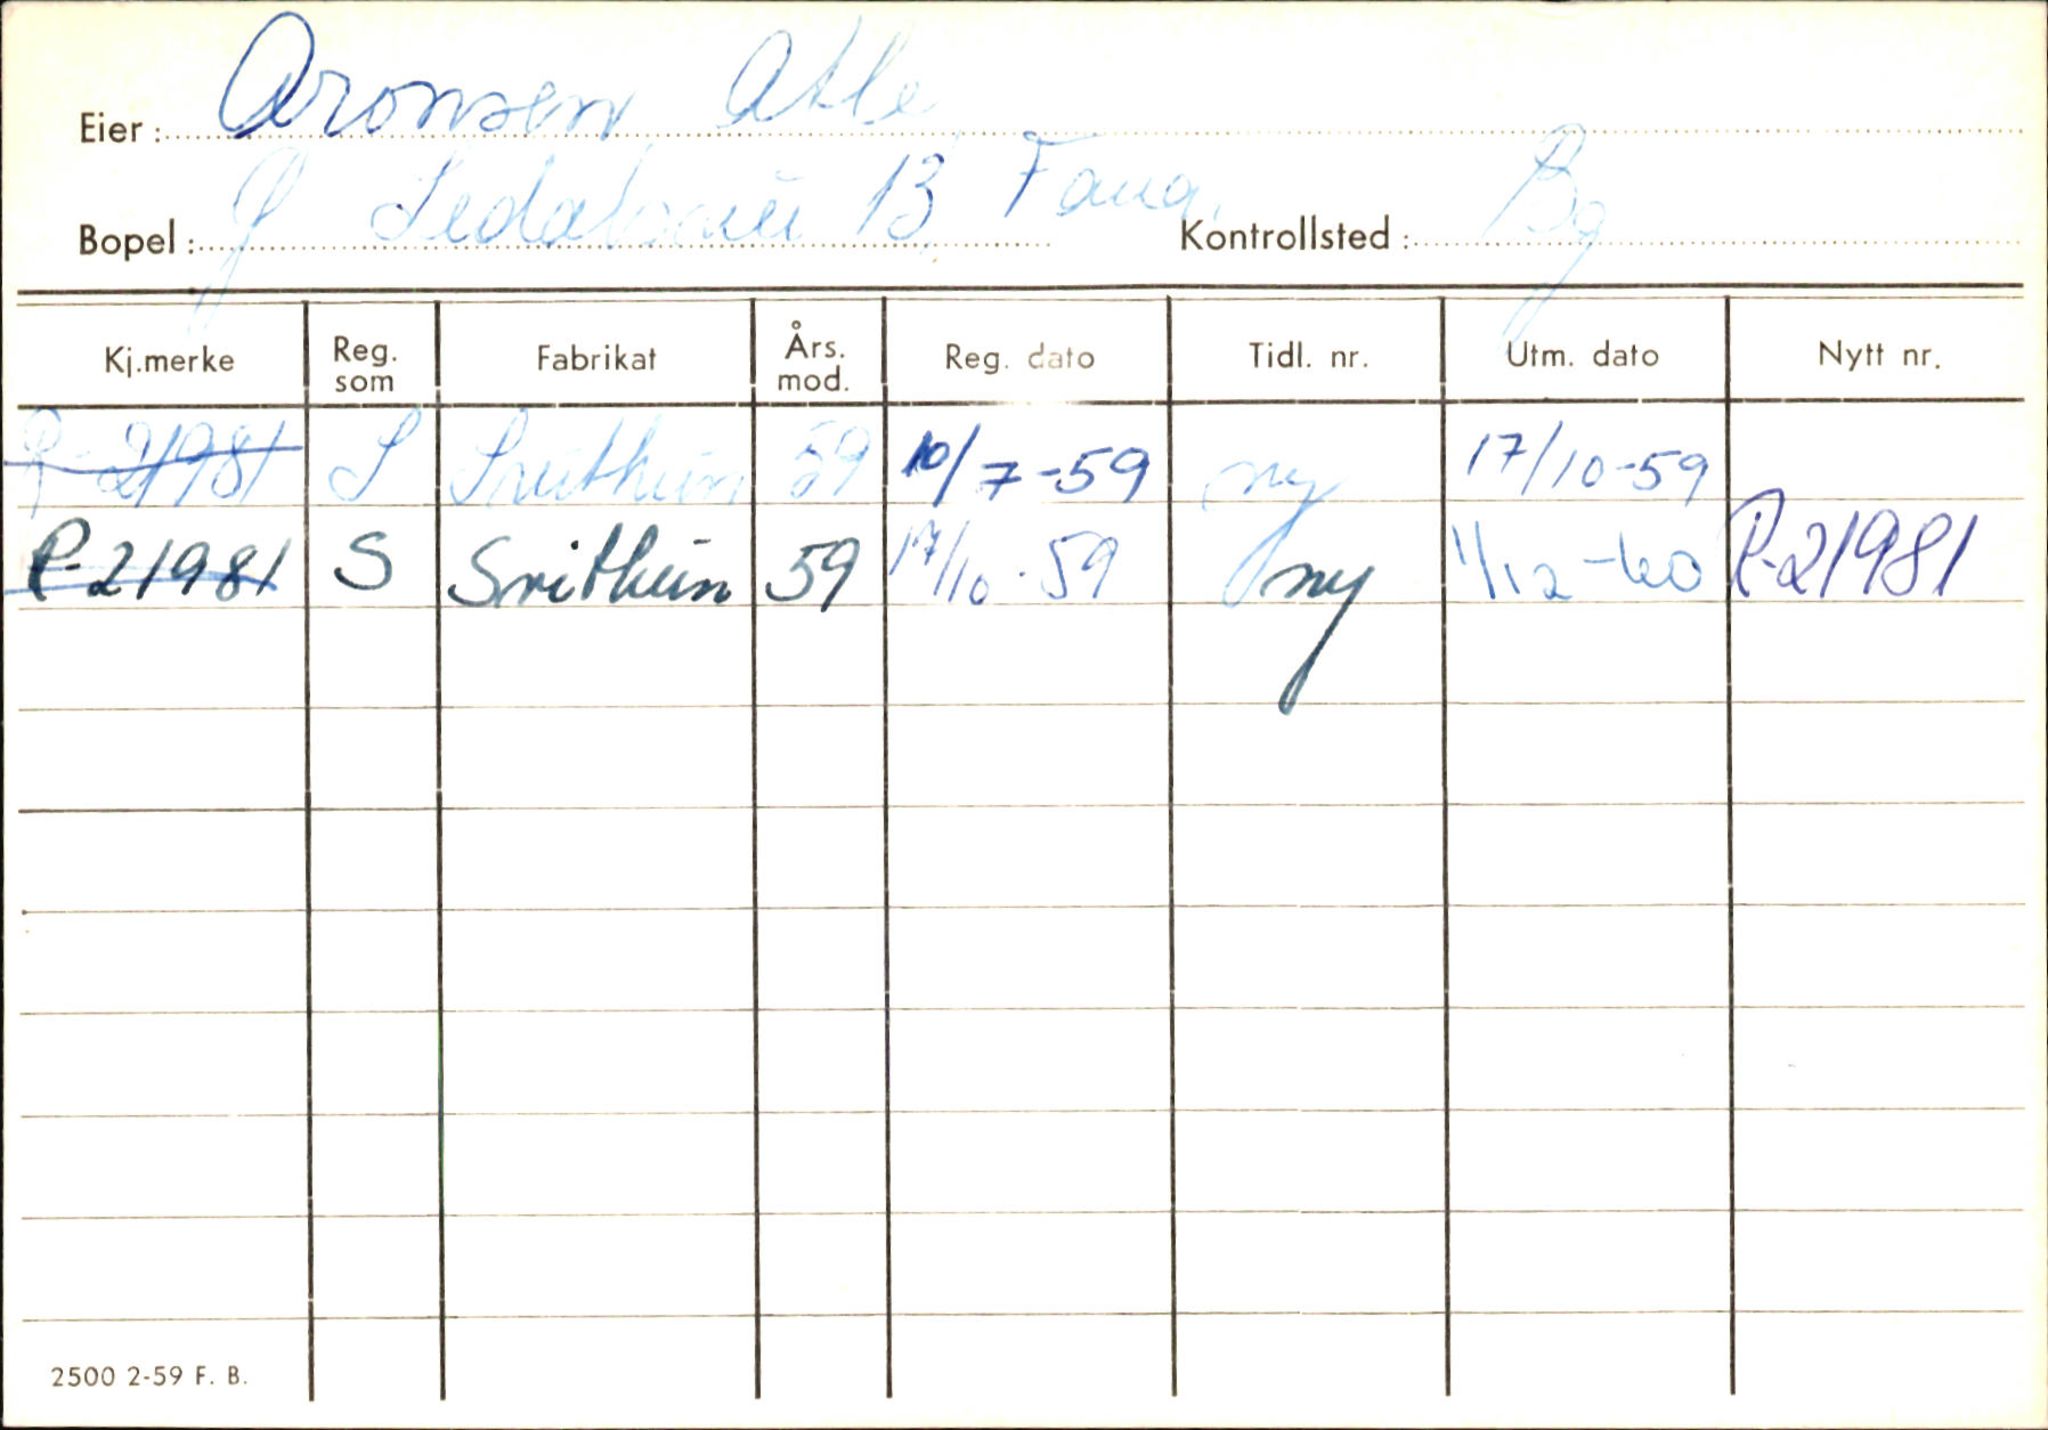 Eier: Aronsen Atle
Bopel: 13, Fana. Kontrollsted: Bg
Kj.merke Reg. som Fabrikat Års. mod. Reg. dato Tidl. nr. Utm. dato Nytt nr.
R-21981 S Svithun 59 10/7-59 ny 17/10-59
R-21981 S Svithun 59 17/10-59 ny 1/12-60 R-21981
2500 2-59 F. B.